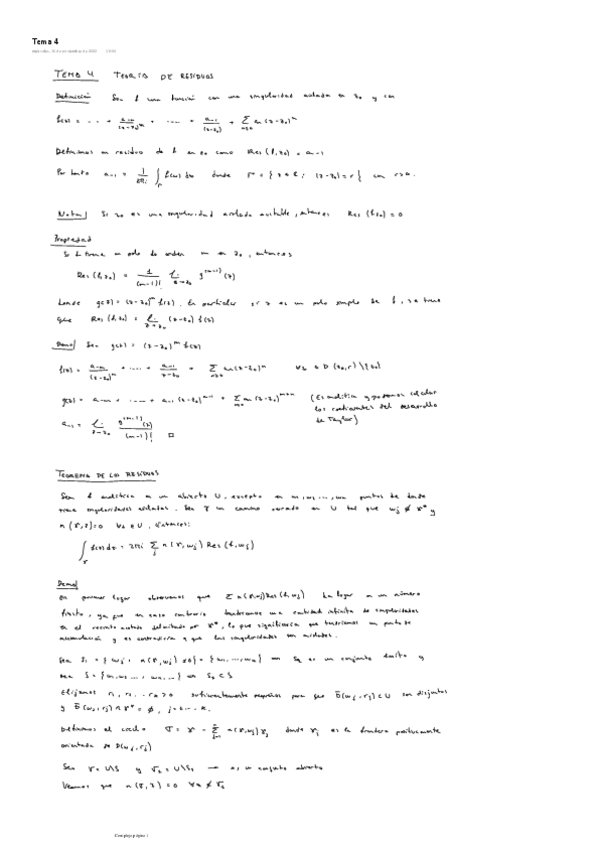 Tema 4
TEMA 4 TEORICO DE RESIDUOS
Definición Sea f una función con una singularidad aislada en z₀ y con
f(z) = ... + a₋ₘ/(z-z₀)ᵐ + ..... + a₋₁/(z-z₀) + Σ aₙ(z-z₀)ⁿ
Definimos el residuo de f en z₀ como Res(f,z₀) = a₋₁
Por tanto a₋₁ = 1/2πi ∫ f(w) dw donde Γ = { z ∈ ℂ : |z-z₀| = r } con r>0.
Nota Si z₀ es una singularidad aislada evitable, entonces Res(f,z₀) = 0
Propiedad
Si f tiene un polo de orden m en z₀, entonces
Res(f,z₀) = 1/(m-1)! lim z→z₀ g⁽ᵐ⁻¹⁾(z)
donde g(z) = (z-z₀)ᵐ f(z). En particular si z es un polo simple de f, se tiene
que Res(f,z₀) = lim z→z₀ (z-z₀) f(z)
Demo Sea g(z) = (z-z₀)ᵐ f(z)
f(z) = a₋ₘ/(z-z₀)ᵐ + .... + a₋₁/z-z₀ + Σ aₙ(z-z₀)ⁿ ∀z ∈ D(z₀,r)\{z₀}
g(z) = a₋ₘ + .... + a₋₁(z-z₀)ᵐ⁻¹ + Σ aₙ(z-z₀)ᵐ⁺ⁿ (Es analítica y podemos calcular
los coeficientes del desarrollo
de Taylor)
a₋₁ = lim z→z₀ g⁽ᵐ⁻¹⁾(z)/(m-1)! □
TEOREMA DE LOS RESIDUOS
Sea f analítica en un abierto U, excepto en w₁,w₂,...,wₙ puntos de donde
tiene singularidades aisladas. Sea γ un camino cerrado en U tal que wⱼ ∉ γ* y
n(γ,z)=0 ∀z ∉ U. Entonces:
∫ f(z)dz = 2πi Σ n(γ,wⱼ) Res(f,wⱼ)
Demo
En primer lugar observamos que Σ n(γ,wⱼ)Res(f,wⱼ) da lugar a un número
finito, ya que en caso contrario tendríamos una cantidad infinita de singularidades
en el recinto acotado delimitado por γ*, lo que significaría que tendríamos un punto de
acumulación y es contradictorio a que las singularidades son aisladas.
Sea S₁ = { wⱼ : n(γ,wⱼ) ≠ 0 } = { w₁,...,wₙ } es un conjunto finito y
sea S = { w₁,w₂,...,wₙ,... }
Elijamos r₁, r₂, ... rₙ>0 suficientemente pequeños para que D̄(wⱼ,rⱼ) ⊂ U son disjuntos
y D̄(wⱼ,rⱼ) ∩ γ* = ∅, j=1,...n.
Definimos el ciclo σ = γ - Σ n(γ,wⱼ)γⱼ donde γⱼ es la frontera positivamente
orientada de D(wⱼ,rⱼ)
es un conjunto abierto
Veamos que
Compleja página 1